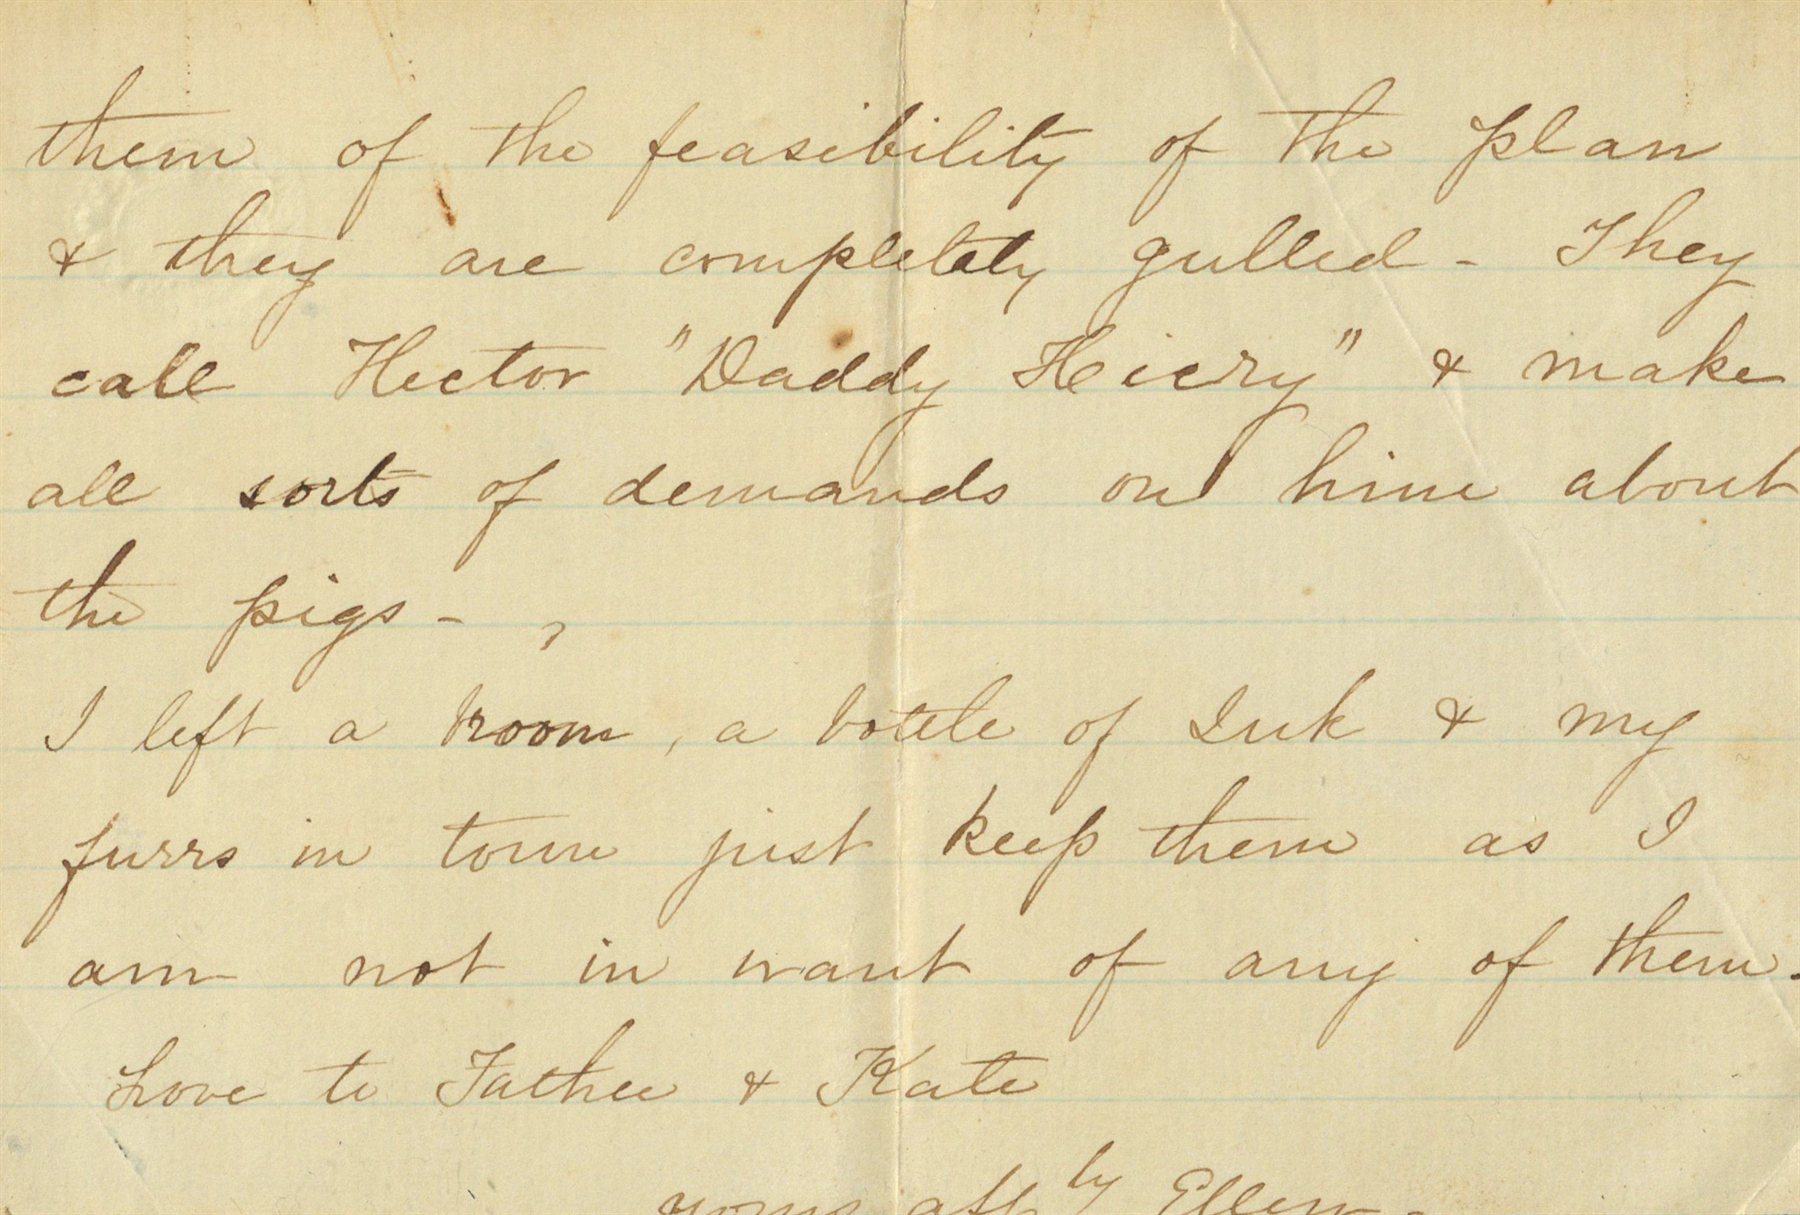 them of the feasibility of the plan
& they are completely gulled - They
call Hector "Daddy Hicry" & make
all sorts of demands on him about
the pigs -
I left a broom, a bottle of Ink & my
furrs in town just keep them as I
am not in want of any of them.
Love to Father & Kate
yours affly Ellen -